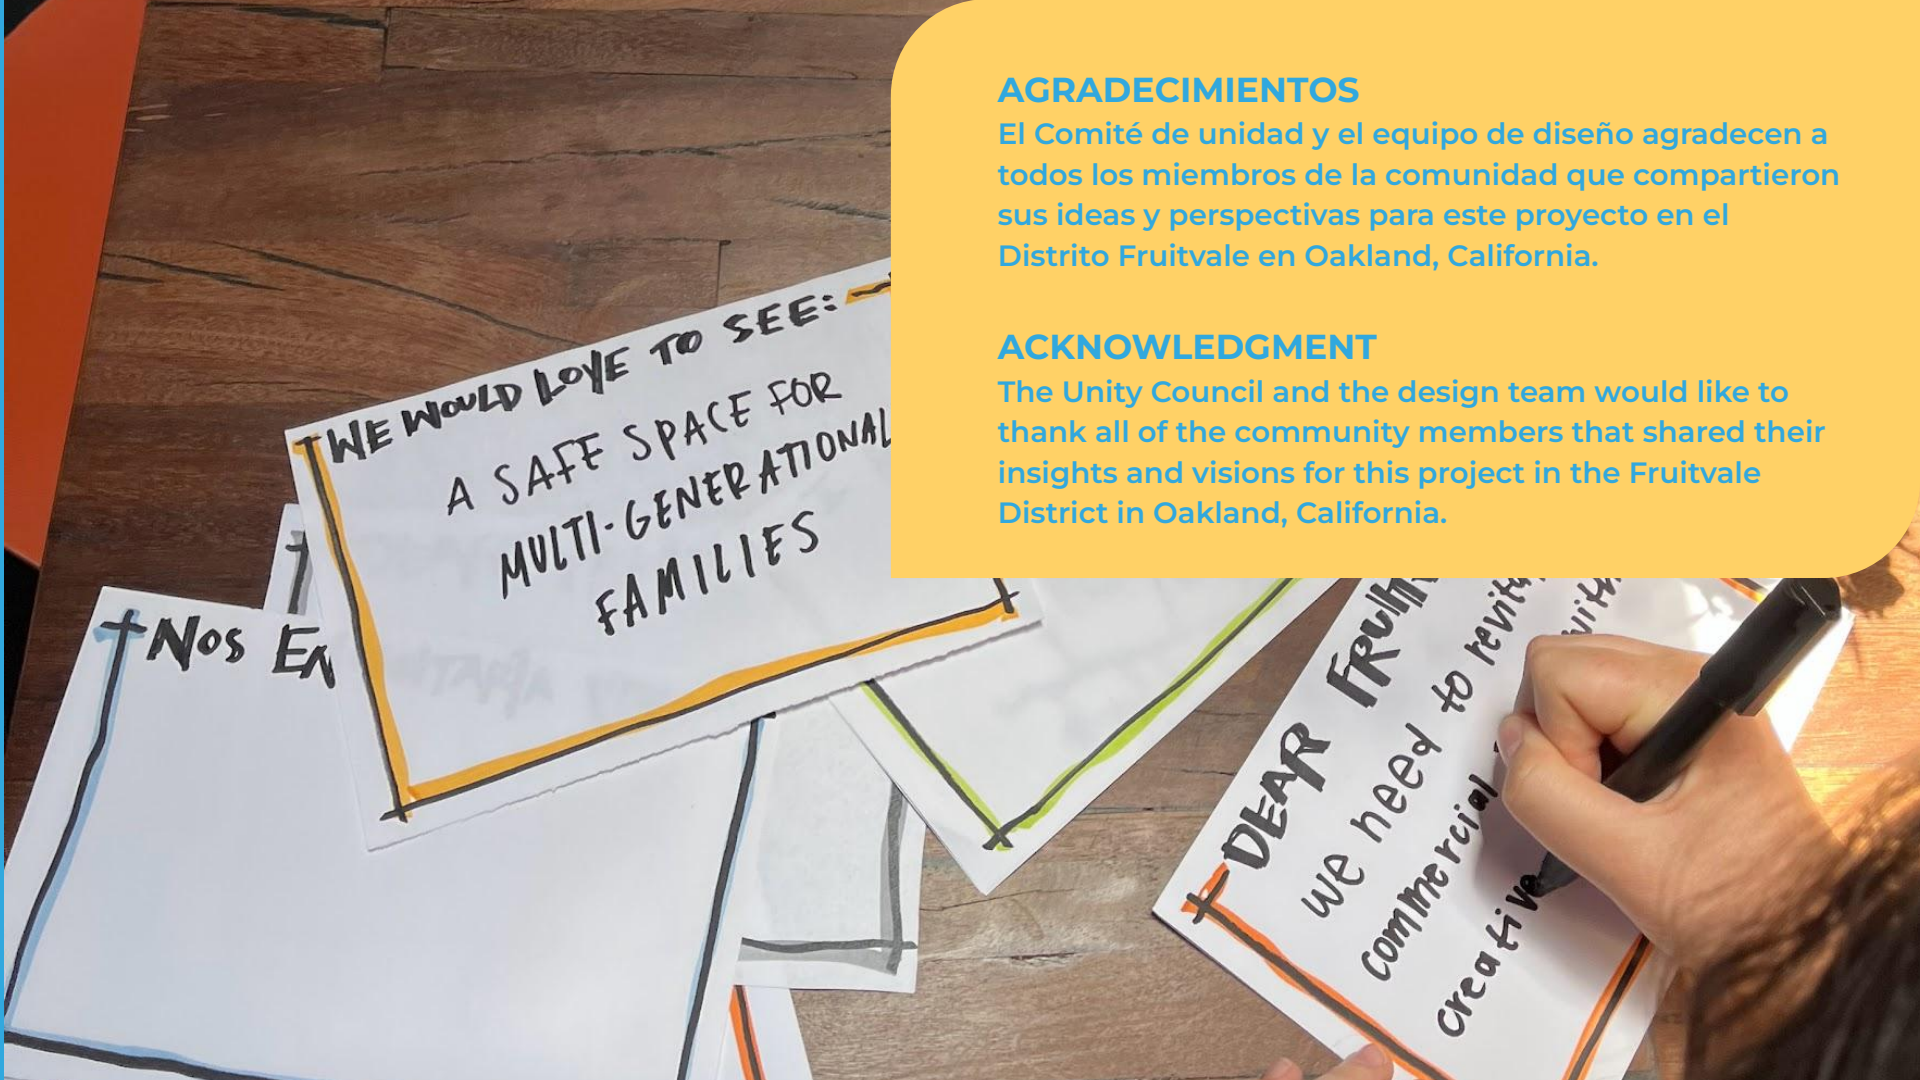 AGRADECIMIENTOS
El Comité de unidad y el equipo de diseño agradecen a
todos los miembros de la comunidad que compartieron
sus ideas y perspectivas para este proyecto en el
Distrito Fruitvale en Oakland, California.
ACKNOWLEDGMENT
The Unity Council and the design team would like to
thank all of the community members that shared their
insights and visions for this project in the Fruitvale
District in Oakland, California.
WE WOULD LOVE TO SEE:
A SAFE SPACE FOR
MULTI-GENERATIONAL
FAMILIES
NOS EN
DEAR
we need to
commercial
creative